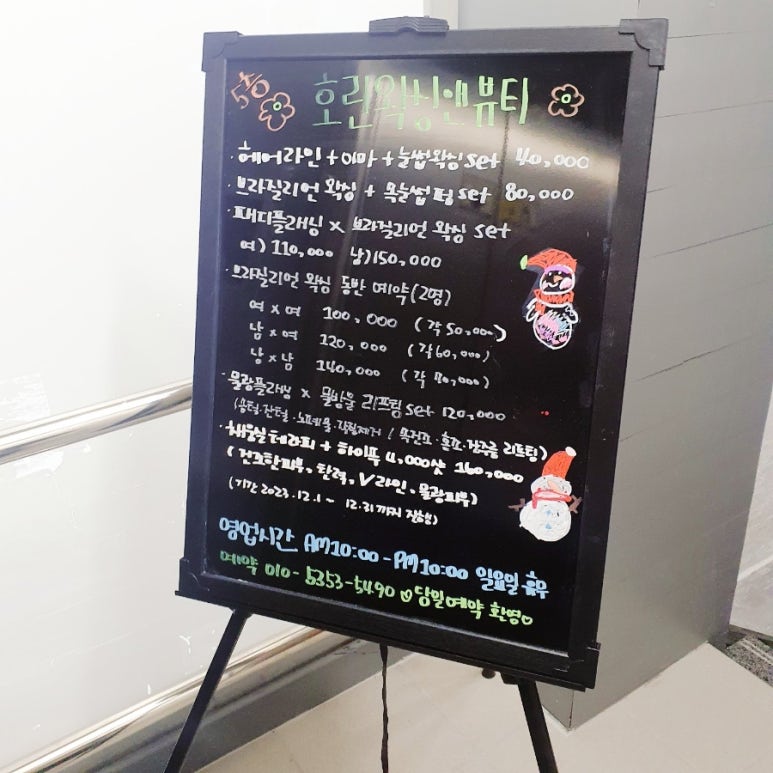 5층 호린왁싱앤뷰티
· 헤어라인 + 이마 + 눈썹왁싱 set 40,000
· 브라질리언 왁싱 + 속눈썹펌 set 80,000
· 패디플래닝 x 브라질리언 왁싱 set
여) 110,000 남) 150,000
· 브라질리언 왁싱 동반 예약 (2명)
여 x 여 100,000 (각 50,000)
남 x 여 120,000 (각 60,000)
남 x 남 140,000 (각 70,000)
· 물광플래닝 x 물방울 리프팅 set 120,000
(솜털·잔털·노폐물·각질제거 / 속건조·홍조·잔주름 리프팅)
· 채움실 테라피 + 하이푸 4,000샷 160,000
(건조한피부, 탄력, V라인, 물광피부)
(기간 2023.12.1 ~ 12.31까지 진행)
영업시간 AM10:00 - PM10:00 일요일 휴무
예약 010-5353-5490 ♡당일예약 환영♡